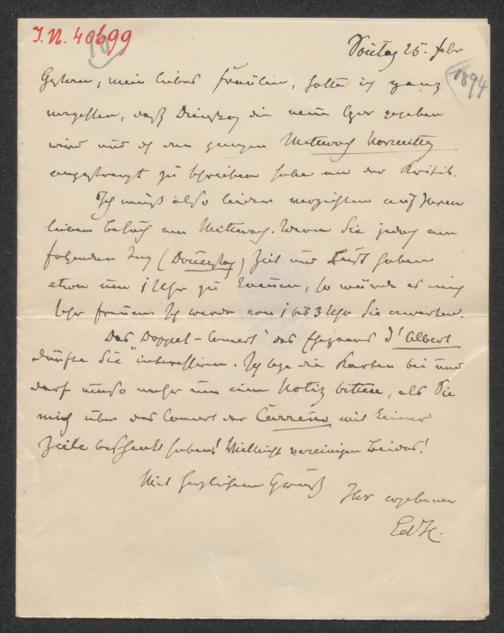 I.N. 40699
Sontag 25. Febr
1894
Gestern, mein liebes Fräulein, hatte ich ganz
vergessen, daß Dienstag die neue Oper gegeben
wird und ich den ganzen Mittwoch Vormittag
angestrengt zu schreiben habe an der Kritik.
Ich muß also leider verzichten auf Ihren
lieben Besuch am Mittwoch. Wenn Sie jedoch am
folgenden Tag (Donnerstag) Zeit und Lust haben
etwa um 1 Uhr zu kommen, so würde es mich
sehr freuen. Ich werde von 1 bis 3 Uhr Sie erwarten.
Das "Doppel-Concert" des Ehepaares d'Albert
dürfte Sie interessiren. Ich lege die Karten bei und
darf umso mehr um eine Notiz bitten, als Sie
mich über das Concert der Carreño mit keiner
Zeile beschenkt haben! Vielleicht vereinigen Sie beides!
Mit herzlichem Gruß
Ihr ergebener
Ed H.